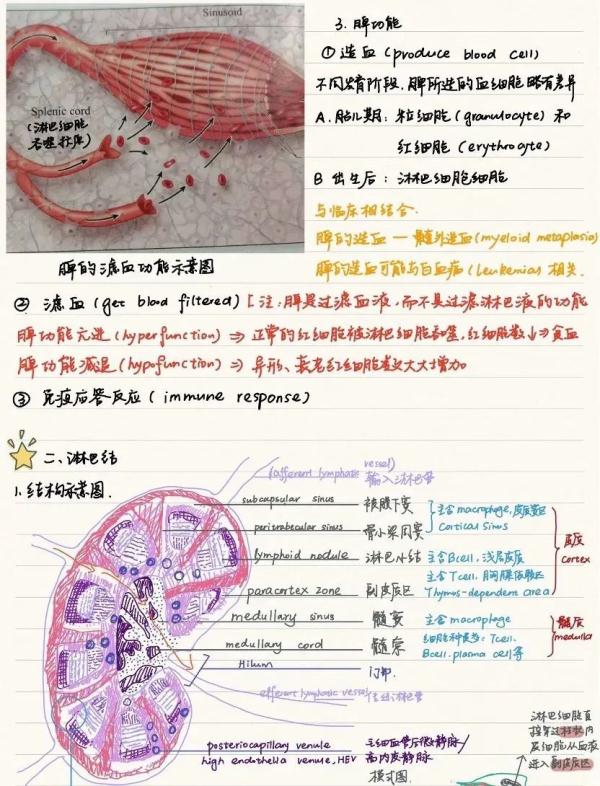 Sinusoid
Splenic cord
(淋巴细胞
吞噬、扣压)
脾的滤血功能示意图
3. 脾功能
① 造血 (produce blood cell)
不同发育阶段, 脾所造的血细胞略有差异
A. 胎儿期: 粒细胞 (granulocyte) 和
红细胞 (erythrocyte)
B 出生后: 淋巴细胞细胞
与临床相结合.
脾的造血 — 髓外造血 (myeloid metaplasia)
脾的造血可能与白血病 (Leukemias 相关.
② 滤血 (get blood filtered) [注: 脾是过滤血液, 而不是过滤淋巴液的功能
脾功能亢进 (hyperfunction) ⇒ 正常的红细胞被淋巴细胞吞噬, 红细胞数↓⇒贫血
脾功能减退 (hypofunction) ⇒ 异形、衰老红细胞数大大增加。
③ 免疫应答反应 (immune response)
二、淋巴结
1. 结构示意图.
(afferent lymphatic vessel)
输入淋巴管
subcapsular sinus 被膜下窦
peritrabecular sinus 骨小梁周窦
主含 macrophage, 皮质窦区
Cortical Sinus
lymphoid nodule 淋巴小结 主含Bcell, 浅层皮质
paracortex zone 副皮质区 主含Tcell, 胸腺依赖区
Thymus-dependent area
皮质
cortex
medullary sinus 髓窦 主含 macrophage
medullary cord 髓索 细胞种类多: Tcell,
Bcell, plasma cell等
髓质
medulla
Hilum 门部.
efferent lymphatic vessel 输出淋巴管
postericapillary venule
high endothelia venule, HEV
毛细血管后微静脉/
高内皮静脉
模式图.
淋巴细胞直
接穿过柱状内
皮细胞从血液
进入副皮质区